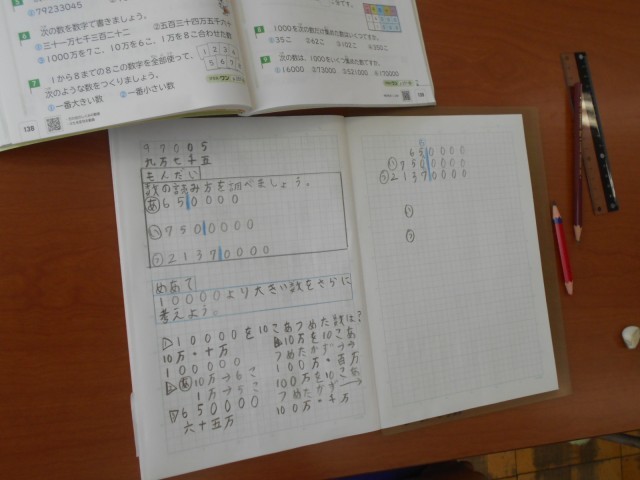 ② 79233045
6 次の数を数字で書きましょう。
① 三十一万七千三百二十二
③ 1000万を7こ、10万を6こ、1万を8こ合わせた数
7 1から8までの8この数字を全部使って、
次のような数をつくりましょう。
① 一番大きい数 ② 一番小さい数
1 2 3 4
138
8 1000を次の数だけ集めた数はいくつですか。
① 35こ ② 62こ ③ 102こ
9 次の数は、1000をいくつ集めた数ですか。
① 16000 ② 73000 ③ 521000
139
97005
九万七千五
もんだい
数の読み方を調べましょう。
あ 650000
い 7500000
う 21370000
めあて
10000より大きい数をさらに
考えよう。
10000を10こあつめた数は?
10万・十万
100000
あ 10万→6こ
1万→5こ
650000
六十五万
10万を10こあ
つめたかず→
100万・百万
100万を10こあ
つめたかず→
1000万・千万
650000
い 7500000
う 21370000